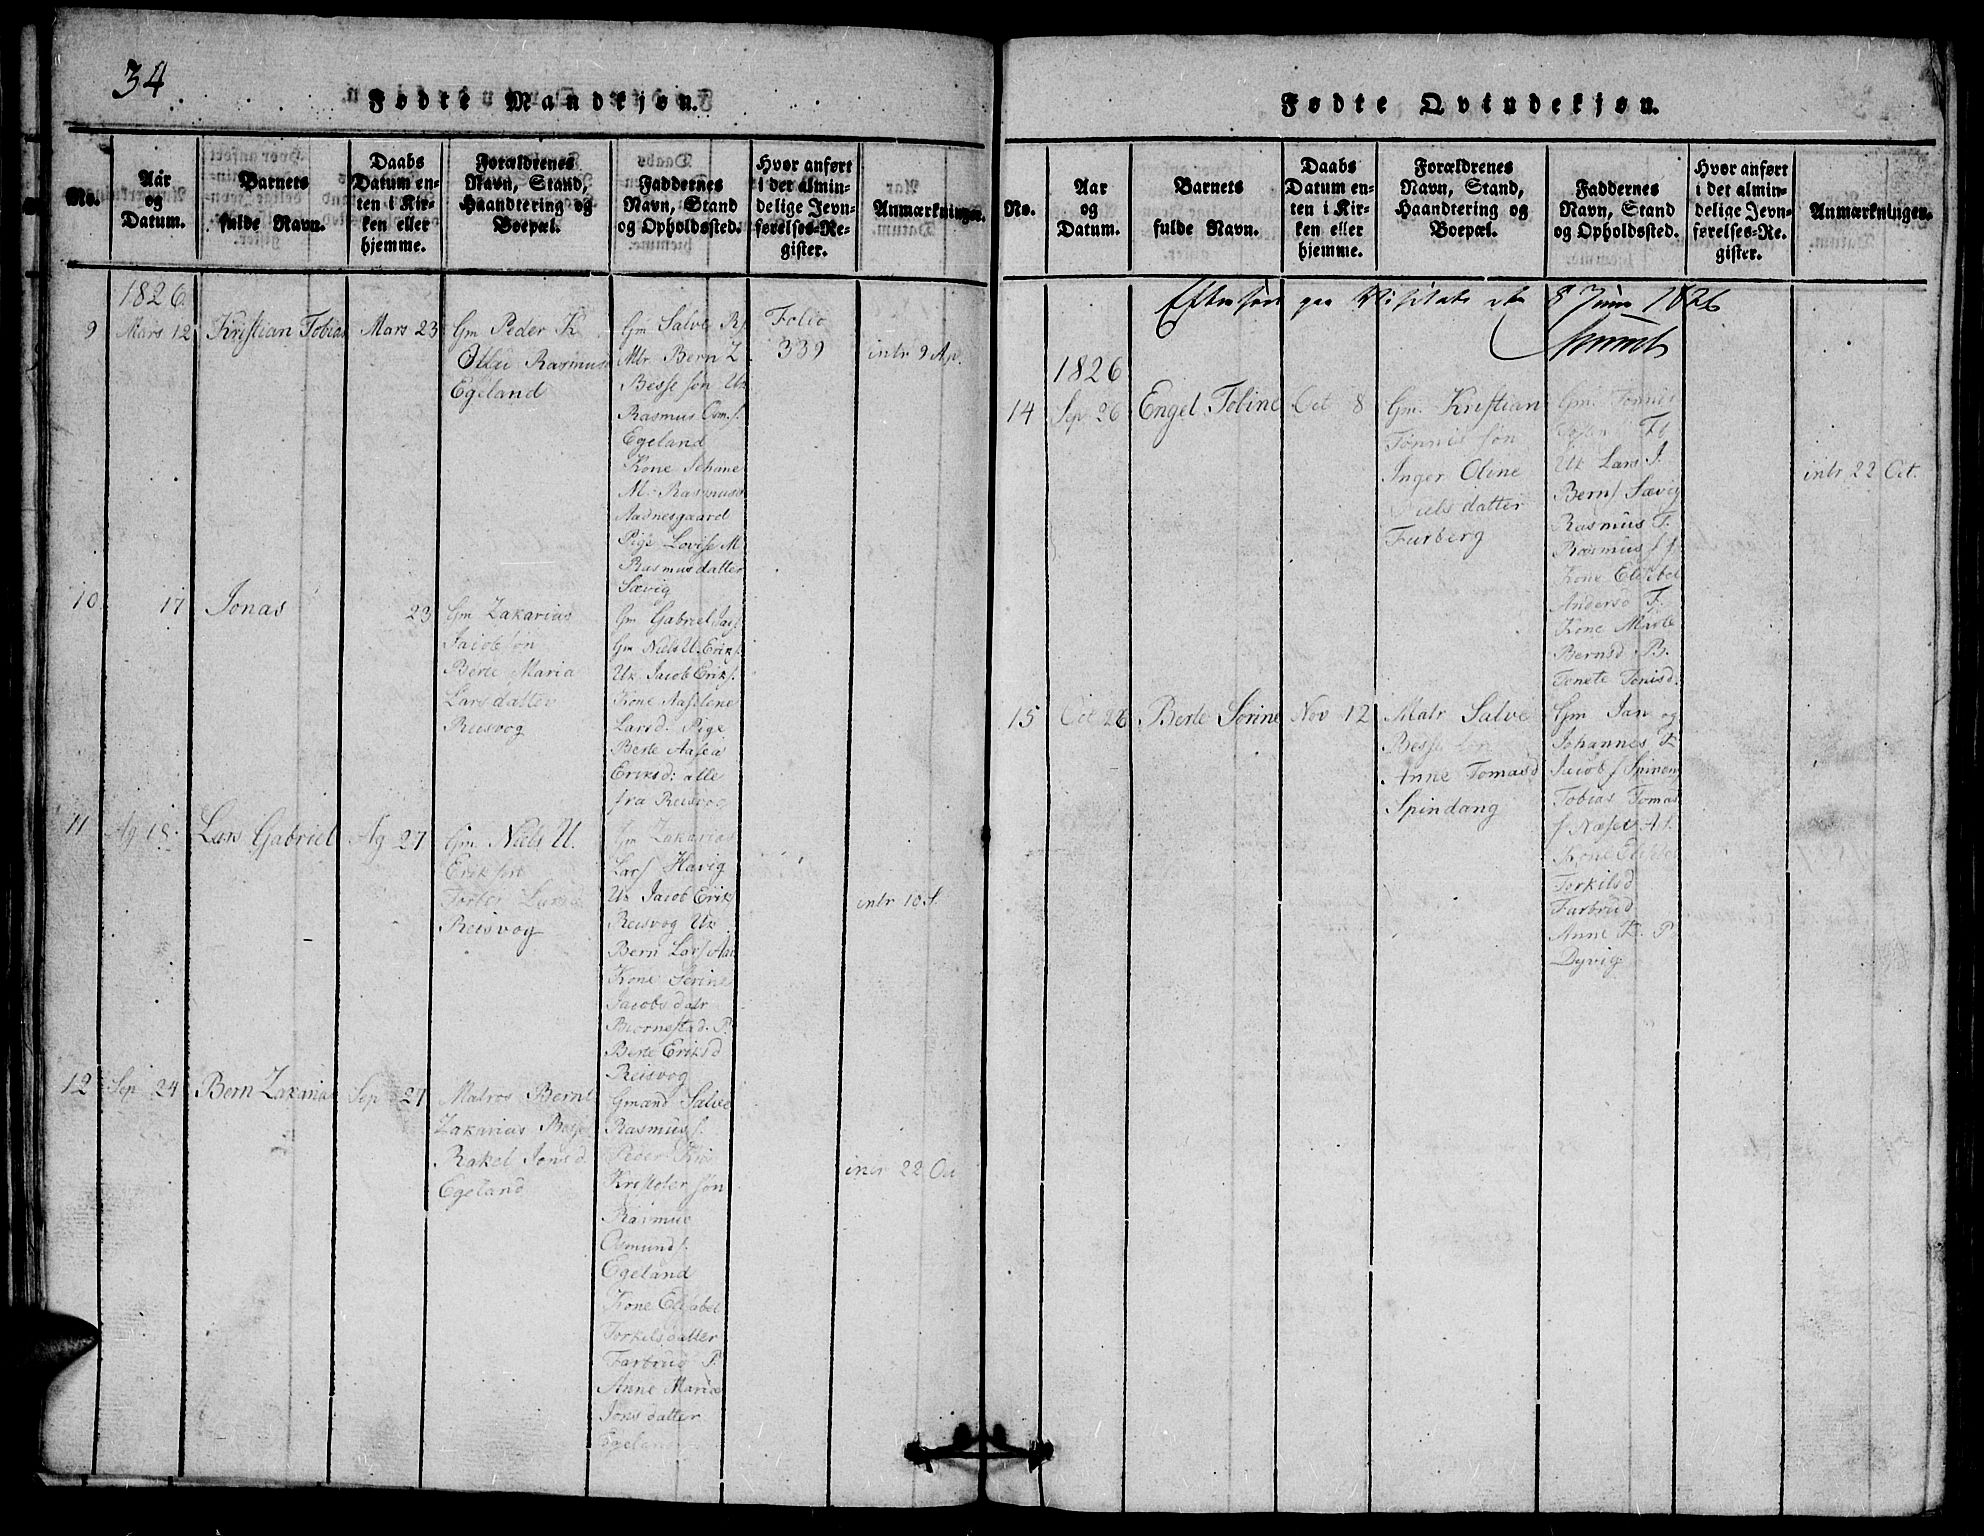 34
Fødte Mandkjøn.
No.
Aar
og
Datum.
Barnets
fulde Navn.
Daabs
Datum en-
ten i Kir-
ken eller
hjemme.
Forældrenes
Navn, Stand,
Haandtering og
Boepæl.
Faddernes
Navn, Stand
og Opholdssted.
Hvor anført
i det almin-
delige Jevn-
førelses-Re-
gister.
Anmærkninger.
1826
9 Mars 12 Kristian Tobias Mars 23
Gm Peder K
Rasmusd
Egeland
Gm Salve R.
Mtr Bern Z.
Besse søn Uk
Rasmus Osm.s.
Egeland
Kone Sehane
M. Rasmusd
Aadnesgaard
Pige Lovise M
Rasmusdatter
Sævig
Folio
339
intr 9 Ap.
10 17 Jonas 23
Gm Zakarias
Jacobsøn
Berte Maria
Larsdatter
Reisvog
Gm Gabriel Jac.s.
Gm Niels U. Eriks.
Uk Jacob Eriks.
Kone Aaselene
Larsd. Pige
Berte Aasea
Eriksd: alle
fra Reisvog
11 Ag 18. Lars Gabriel Ag 27
Gm. Niels U.
Eriksøn
Larsd
Reisvog
Gm Zakarias
Lars Havig
Uk Jacob Eriks
Reisvog Uk
Bern Lars
Kone Serine
Jacobsdatr
Biornestad. P.
Berte Eriksd
Reisvog
intr 10 S.
12 Sep 24 Bern Zakarias Sep 27
Matros Bernt
Zakarias Besses
Rakel Jonsd.
Egeland
Gmænd Salve
Rasmus s.
Peder Kri
Kristofer søn
Rasmus
Osmund s.
Egeland
Kone Elisabet
Torkelsdatter
Farbrud P.
Anne Maria
Jonsdatter
Egeland
intr 22 Oct
Fødte Qvindekjøn.
No.
Aar
og
Datum.
Barnets
fulde Navn.
Daabs
Datum en-
ten i Kir-
ken eller
hjemme.
Forældrenes
Navn, Stand,
Haandtering og
Boepæl.
Faddernes
Navn, Stand
og Opholdssted.
Hvor anført
i det almin-
delige Jevn-
førelses-Re-
gister.
Anmærkninger.
Efterseet paa Visitats den 8 Juni 1826
1826
14 Sep 26 Engel Tobine Oct 8
Gm. Kristian
Tønnis søn
Inger Oline
Nielsdatter
Furberg
Gm. Tønnes
Uk Lars J.
Bern s Sævig
Rasmus T.
Rasmus s
Kone Elisabet
Andersd F.
Kone Marte
Bernsd. B.
Tonete Tonisd.
intr 22 Oct.
15 Oct 26 Berte Serine Nov 12
Matr Salve
Besse søn
Anne Tomasd
Spindang
Gm Jan og
Johannes K
Jacob s Spinang
Tobias Tomas
s Næset
Kone Elisabet
Torkilsd
Farbrud
Anne K. P.
Dyvig